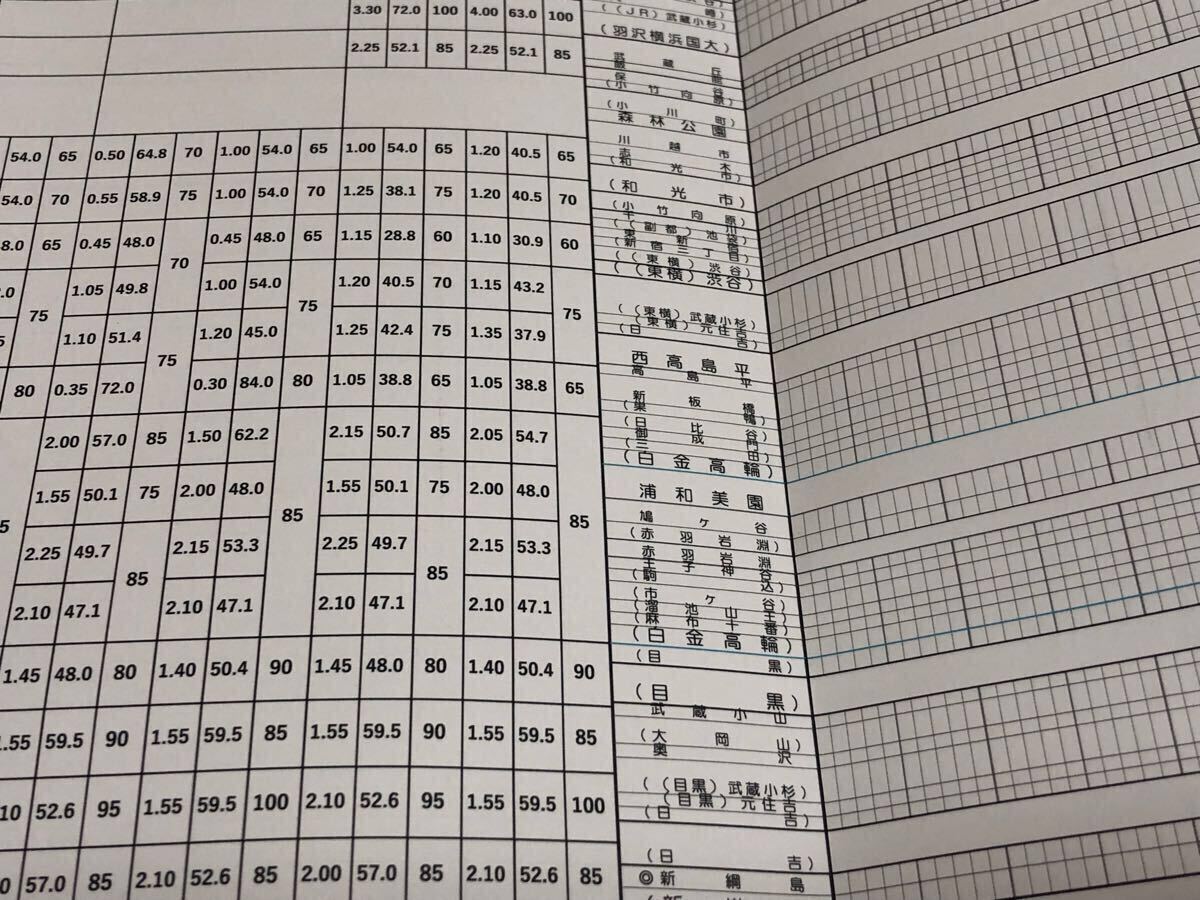 3.30 72.0 100 4.00 63.0 100 ((JR)武蔵小杉)
(羽沢横浜国大)
2.25 52.1 85 2.25 52.1 85
武蔵丘
飯能
保谷
(小竹向原)
(小川町)
森林公園
54.0 65 0.50 64.8 70 1.00 54.0 65 1.00 54.0 65 1.20 40.5 65
川越市
志木
(和光市)
54.0 70 0.55 58.9 75 1.00 54.0 70 1.25 38.1 75 1.20 40.5 70 (和光市)
(小竹向原)
千川
((副都)池袋)
東新宿
(新宿三丁目)
8.0 65 0.45 48.0 70 0.45 48.0 65 1.15 28.8 60 1.10 30.9 60
((東横)渋谷)
((東横)渋谷)
.0 75 1.05 49.8 1.00 54.0 75 1.20 40.5 70 1.15 43.2 75
((東横)武蔵小杉)
(東横)元住吉
(日吉)
5 1.10 51.4 75 1.20 45.0 1.25 42.4 75 1.35 37.9
西高島平
高島平
80 0.35 72.0 0.30 84.0 80 1.05 38.8 65 1.05 38.8 65
新板橋
(巣鴨)
(日比谷)
御成門
(三田)
(白金高輪)
2.00 57.0 85 1.50 62.2 85 2.15 50.7 85 2.05 54.7 85
浦和美園
1.55 50.1 75 2.00 48.0 1.55 50.1 75 2.00 48.0
鳩ヶ谷
(赤羽岩淵)
5 2.25 49.7 85 2.15 53.3 2.25 49.7 85 2.15 53.3
赤羽岩淵
王子神谷
(駒込)
2.10 47.1 2.10 47.1 2.10 47.1 2.10 47.1
(市ヶ谷)
(溜池山王)
(麻布十番)
(白金高輪)
(目黒)
1.45 48.0 80 1.40 50.4 90 1.45 48.0 80 1.40 50.4 90
(目黒)
武蔵小山
1.55 59.5 90 1.55 59.5 85 1.55 59.5 90 1.55 59.5 85
(大岡山)
奥沢
10 52.6 95 1.55 59.5 100 2.10 52.6 95 1.55 59.5 100
((目黒)武蔵小杉)
(目黒)元住吉
(日吉)
(日吉)
0 57.0 85 2.10 52.6 85 2.00 57.0 85 2.10 52.6 85 ◎新綱島